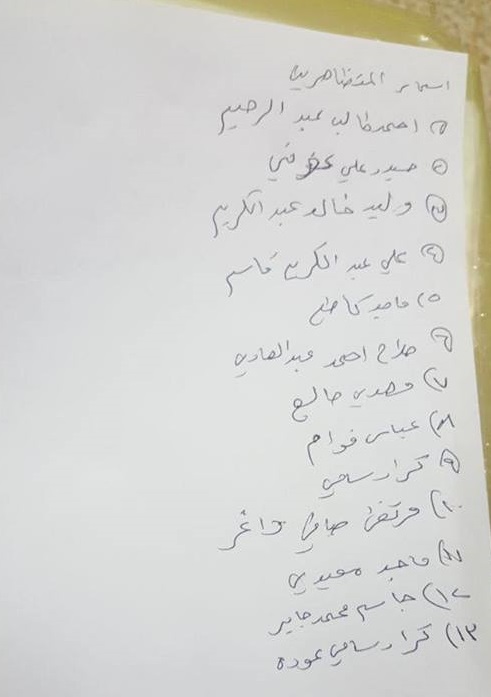 اسماء المتظاهرين
١) احمد طالب عبد الرحيم
٢) حيدر علي
٣) وليد خالد عبد الكريم
٤) علي عبد الكريم قاسم
٥) ماجد كاطع
٦) صلاح احمد عبد الهادي
٧) مهدي صالح
٨) عباس قوام
٩) كرار سامي
١٠) مرتضى
١١) ماجد معيدي
١٢) جاسم محمد جابر
١٣) كرار سامي عوده